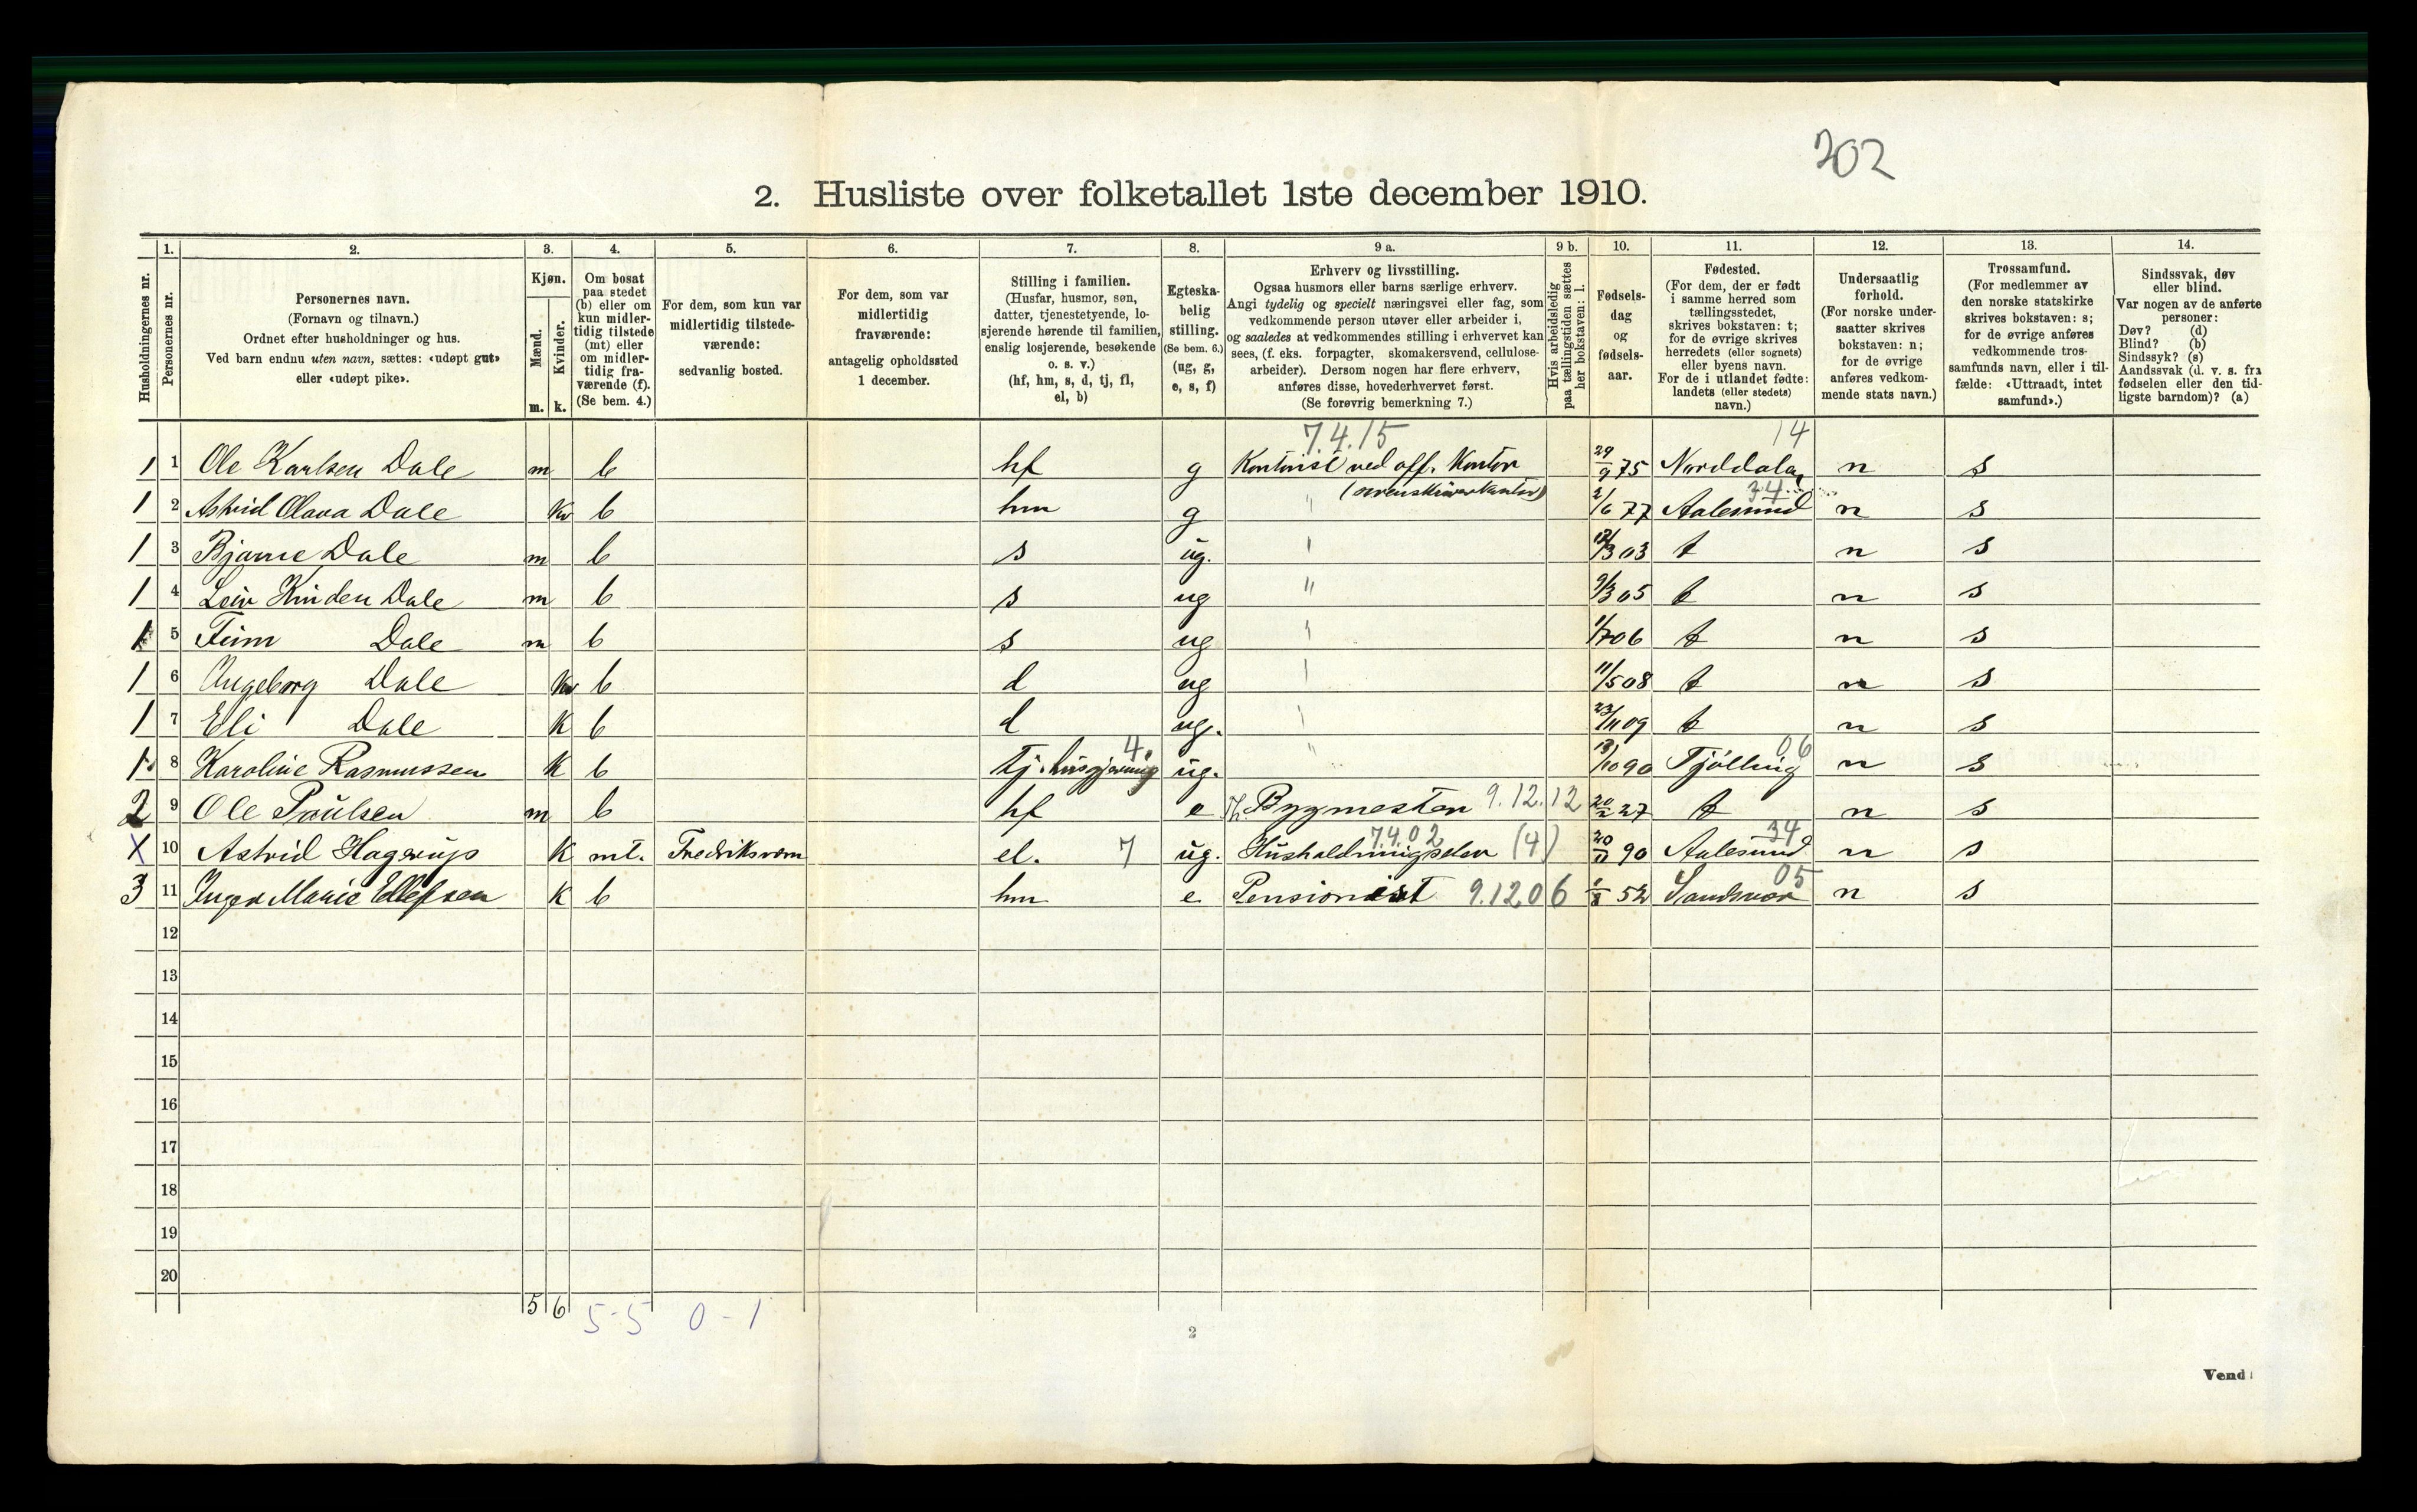 202
2. Husliste over folketallet 1ste december 1910.
Husholdningernes nr.
1. Personernes nr.
2. Personernes navn. (Fornavn og tilnavn.) Ordnet efter husholdninger og hus. Ved barn endnu uten navn, sættes: «udøpt gut» eller «udøpt pike».
3. Kjøn. Mænd. m. Kvinder. k.
4. Om bosat paa stedet (b) eller om kun midlertidig tilstede (mt) eller om midlertidig fraværende (f). (Se bem. 4.)
5. For dem, som kun var midlertidig tilstedeværende: sedvanlig bosted.
6. For dem, som var midlertidig fraværende: antagelig opholdssted 1 december.
7. Stilling i familien. (Husfar, husmor, søn, datter, tjenestetyende, losjerende hørende til familien, enslig losjerende, besøkende o. s. v.) (hf, hm, s, d, tj, fl, el, b)
8. Egteskabelig stilling. (Se bem. 6.) (ug, g, e, s, f)
9 a. Erhverv og livsstilling. Ogsaa husmors eller barns særlige erhverv. Angi tydelig og specielt næringsvei eller fag, som vedkommende person utøver eller arbeider i, og saaledes at vedkommendes stilling i erhvervet kan sees, (f. eks. forpagter, skomakersvend, cellulosearbeider). Dersom nogen har flere erhverv, anføres disse, hovederhvervet først. (Se forøvrig bemerkning 7.)
9 b. Hvis arbeidsledig paa tællingstiden sættes her bokstaven: l.
10. Fødselsdag og fødselsaar.
11. Fødested. (For dem, der er født i samme herred som tællingsstedet, skrives bokstaven: t; for de øvrige skrives herredets (eller sognets) eller byens navn. For de i utlandet fødte: landets (eller stedets) navn.)
12. Undersaatlig forhold. (For norske undersaatter skrives bokstaven: n; for de øvrige anføres vedkommende stats navn.)
13. Trossamfund. (For medlemmer av den norske statskirke skrives bokstaven: s; for de øvrige anføres vedkommende trossamfunds navn, eller i tilfælde: «Uttraadt, intet samfund».)
14. Sindssvak, døv eller blind. Var nogen av de anførte personer: Døv? (d) Blind? (b) Sindssyk? (s) Aandssvak (d. v. s. fra fødselen eller den tidligste barndom)? (a)
7.4.15 14
1 1 Ole Karlsen Dale m b hf g Kontorist ved off. Kontor 29/9 75 Norddalen n s
(sorenskriverkontor) 34
1 2 Astrid Olava Dale kv b hm g " 2/6 77 Aalesund n s
1 3 Bjarne Dale m b s ug. " /3 03 t n s
1 4 Leiv Hinden Dale m b s ug " 9/3 05 t n s
1 5 Finn Dale m b s ug " 1/7 06 t n s
1 6 Ingeborg Dale kv b d ug " 11/5 08 t n s
1 7 Eli Dale k b d ug. " 23/11 09 t n s
4. 06
1 8 Karoline Rasmussen k b tj. husgjerning ug. " /10 90 Tjølling n s
2 9 Ole Paulsen m b hf e Bygmester 9.12.12 20/2 27 t n s
7.4.02 34
x 10 Astrid Hagerup k mt. Fredriksværn el. 7 ug. Husholdningselev (4) 20/11 90 Aalesund n s
05
3 11 Inger Marie Ellefsen k b hm e Pensionist 9.12.06 52 Sandsvær n s
12
13
14
15
16
17
18
19
20
5 6 5-5 0-1
2
Vend